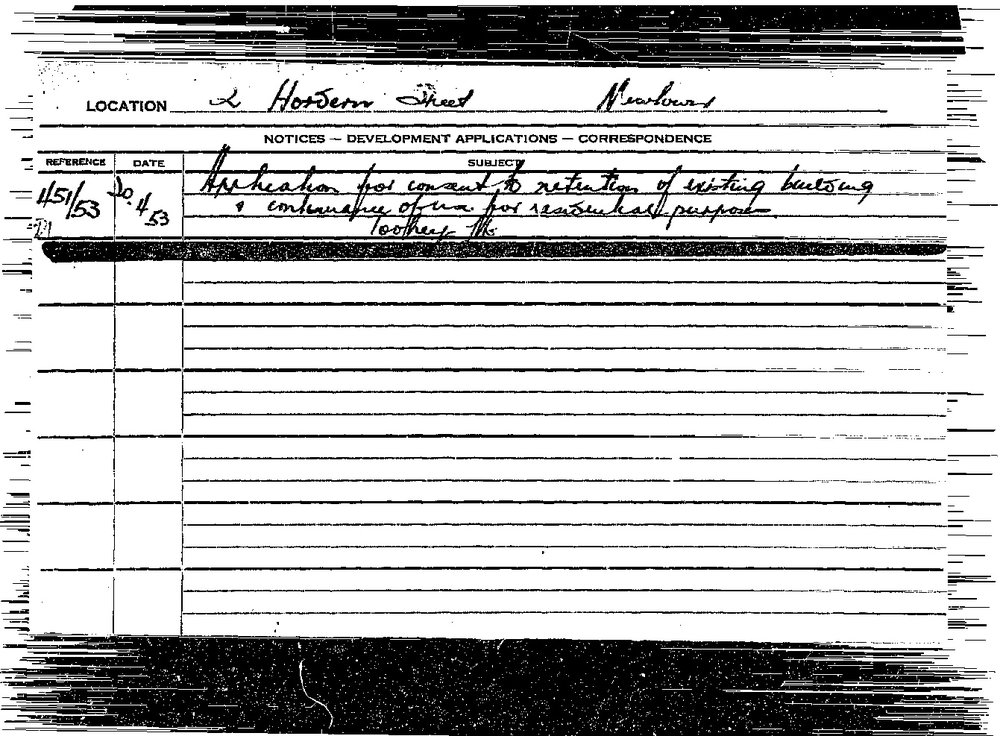 LOCATION 2 Hordern Street Newtown
NOTICES — DEVELOPMENT APPLICATIONS — CORRESPONDENCE
REFERENCE DATE SUBJECT
451/53 20.4.53 Application for consent to retention of existing building
& continuance of use for residential purposes.
Toohey